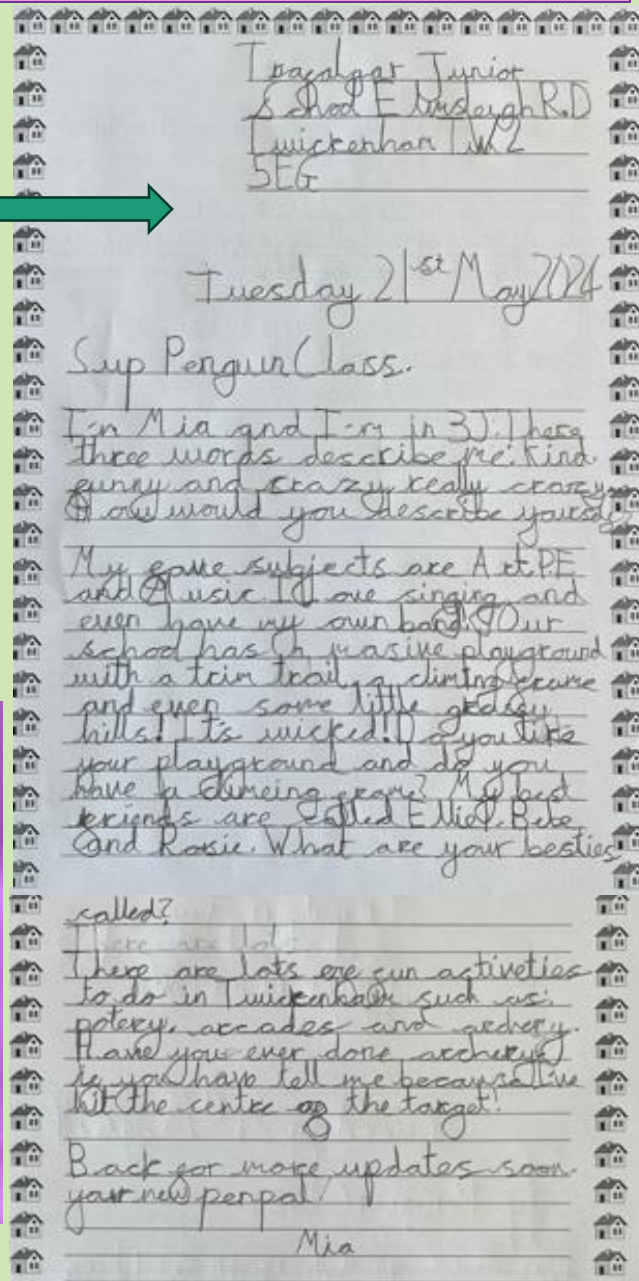 Tragalgar Junior
School Elmsleigh R.D
Twickenham TW2
5EG
Tuesday 21st May 2024
Sup Penguin Class.
I'm Mia and I'm in 3J. There
three words describe me: kind.
funny and crazy really crazy.
How would you describe yourself
My fave subjects are Art PE
and Music. I love singing and
even have my own band! Our
school has a masive playground
with a trim trail, a climing frame
and even some little grassy
hills! It's wicked! Do you like
your playground and do you
have a climeing frame? My best
friends are called Ellie P. Bebe
and Rosie. What are your besties
called?
There are lots
There are lots ofe fun activeties
to do in Twickenham such as:
potery, arcades and archery.
Have you ever done archery?
if you have tell me because I've
hit the centre of the target!
Back for more updates soon.
your new penpal!
Mia